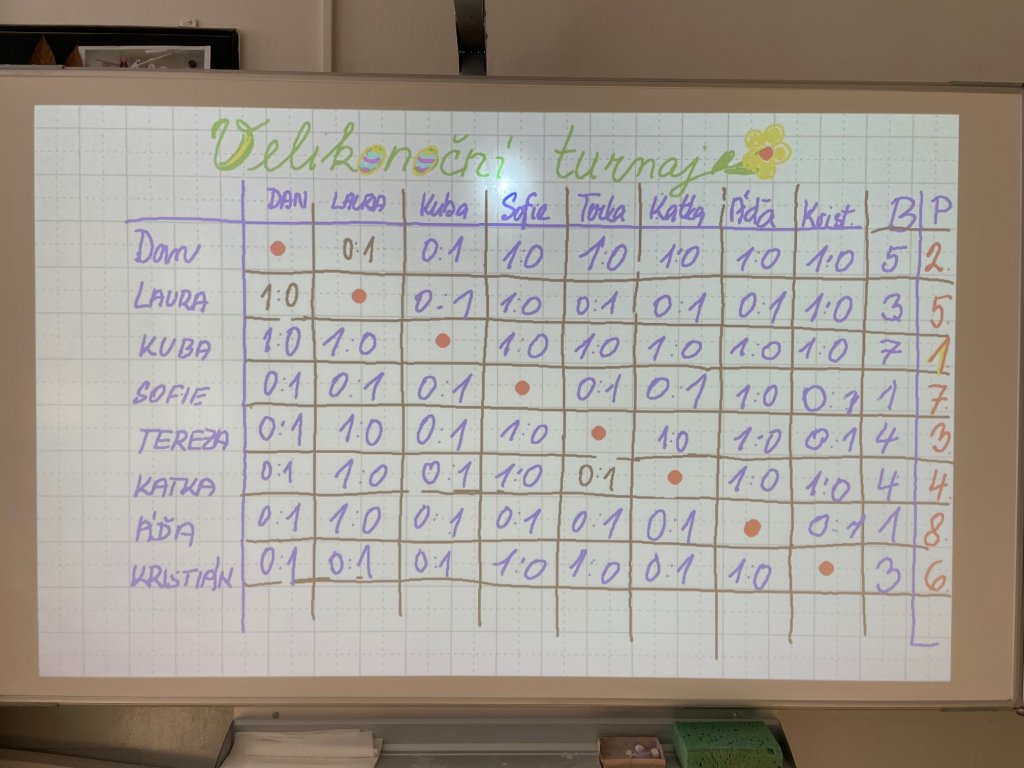 Velikonoční turnaj
DAN LAURA Kuba Sofie Terka Katka Áďa Krist. B P
Dan 0:1 0:1 1:0 1:0 1:0 1:0 1:0 5 2.
LAURA 1:0 0:1 1:0 0:1 0:1 0:1 1:0 3 5
KUBA 1:0 1:0 1:0 1:0 1:0 1:0 1:0 7 1
SOFIE 0:1 0:1 0:1 0:1 0:1 1:0 0:1 1 7
TEREZA 0:1 1:0 0:1 1:0 1:0 1:0 0:1 4 3
KATKA 0:1 1:0 0:1 1:0 0:1 1:0 1:0 4 4.
ÁĎA 0:1 1:0 0:1 0:1 0:1 0:1 0:1 1 8.
KRISTIÁN 0:1 0:1 0:1 1:0 1:0 0:1 1:0 3 6.